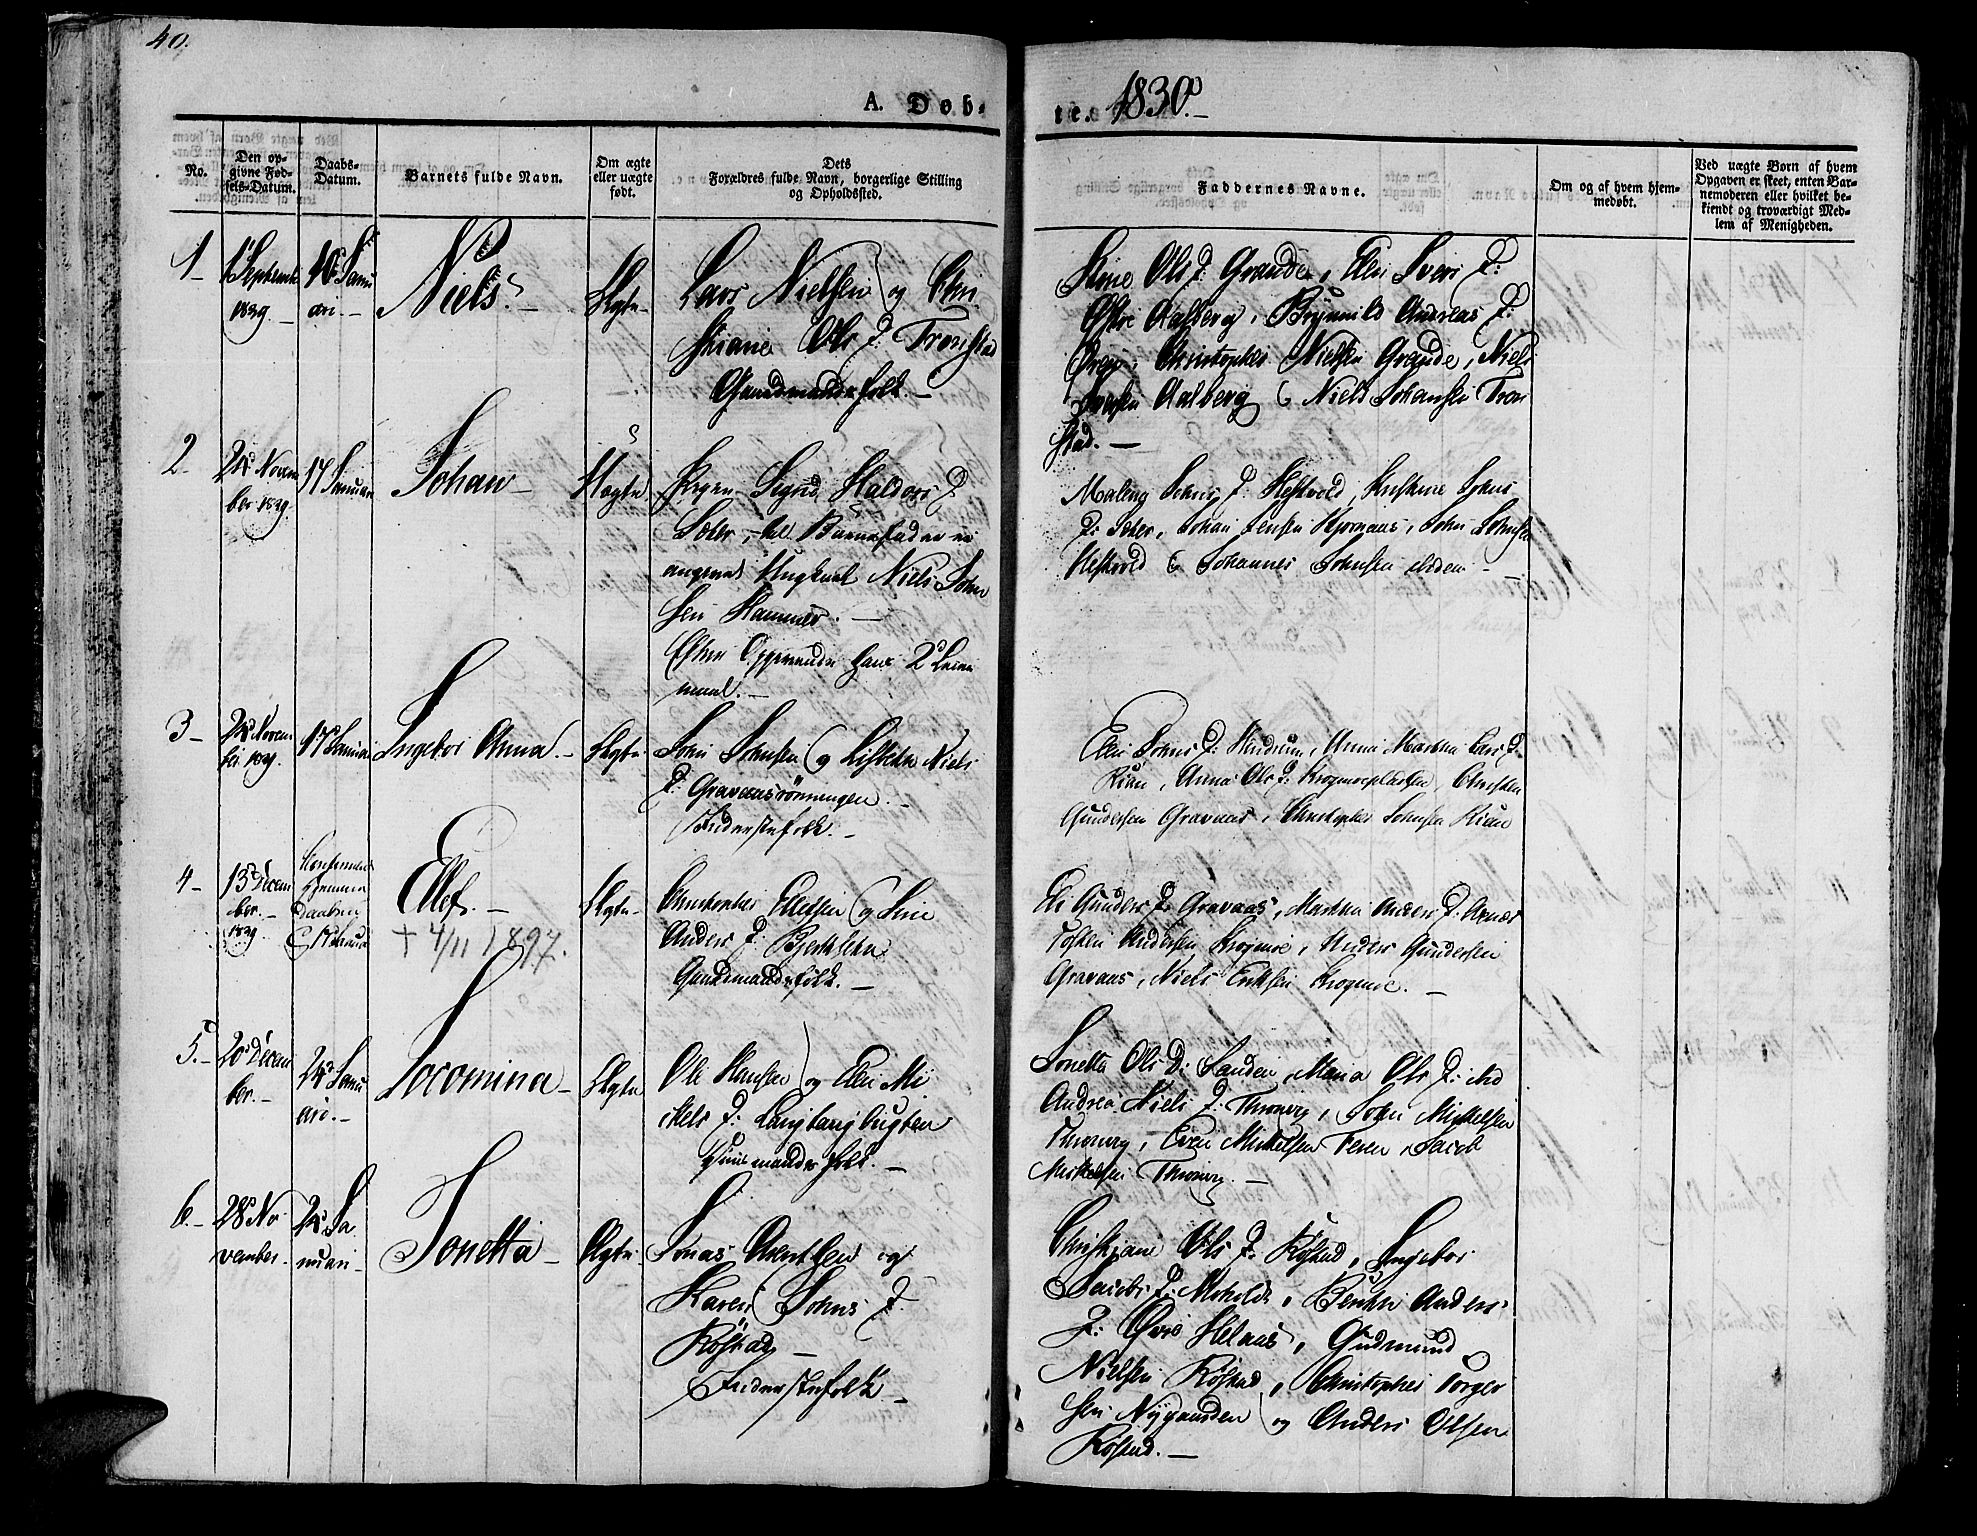 40.
A. Døb-
te. 1830.
No.
Den op-
givne Fød-
sels-Datum.
Daabs-
Datum.
Barnets fulde Navn.
Om ægte
eller uægte
født.
Dets
Forældres fulde Navn, borgerlige Stilling
og Opholdssted.
Faddernes Navne.
Om og af hvem hjem-
medøbt.
Ved uægte Børn af hvem
Opgaven er skeet, enten Bar-
nemoderen eller hvilket be-
kiendt og troværdigt Med-
lem af Menigheden.
1
1 September
1829.
10 Janu
ari.
Niels
Ægte
Lars Nielsen og Chri
stiane Ols D. Tronstad
Gaardmandsfolk.
Ols D. Grande, Elen Svers D:
Østre Aalberg, Brynnild Andreas D:
Christopher Nielsen Grande, Niels
Aalberg & Niels Johansen Tron
stad.
2
24 Novem
ber 1829.
17 Januari
Johan
Uægte
Pigen Sigrid Haldors D
Sæter, til Barnefader er
angivet Ungkarl Niels John
sen Hammer.
2d Leier
maal.
Maleng Johns D. Heftvold,
D: Sæter, Johan Jensen, John Johnsen
Heftvold & Johannes Johnsen
3
24 Novem
ber 1829.
17 Januari
Ingebor Anna.
Ægte
John Johnsen og Lisbeth Niels
D: Gravaasrönningen.
Inderstefolk.
Elen Johns D: Hindrum, Anna Martha Lars D
Rian, Anna Ols D: Krogmoepladsen, Christen
Gundersen Gravaas, Christopher Johnsen Rian
4
13 Decem
ber.
1829.
17 Januari
Ellef.
+ 4/11 1897.
Ægte
Christopher Ellefsen og Line
Anders D. Bjerkleten
Gaardmandsfolk.
Eli Gunders D. Gravaas, Martha Anders D:
Andersen Krogmoe, Anders Gundersen
Gravaas, Niels Eriksen Krogmoe.
5.
20 Decem
ber.
24 Janu
ari.
Jocomina
Ægte
Ole Hansen og Elen Mi
kels D. Langlangbugten
Huusmandsfolk.
Jonetta Ols D: Sanden, Maria Ols D: ibd
Andrea Niels D. Thronvig, John Mickelsen
Thronvig, Even Mickelsen Teien, Jacob
Mickelsen Thronvig.
6.
28 No
vember.
24 Ja
nuari
Jonetta
Ægte
Jonas Arentsen og
Karen Johns D.
Röstad
Inderstefolk
Christiane Ols D. Röstad, Ingebor
Jacobs D: Moholdt, Anders
D: Øvre Helaas, Gudmund
Nielsen Röstad, Christopher Torger
sen Nygaarden og Anders Olsen
Röstad.